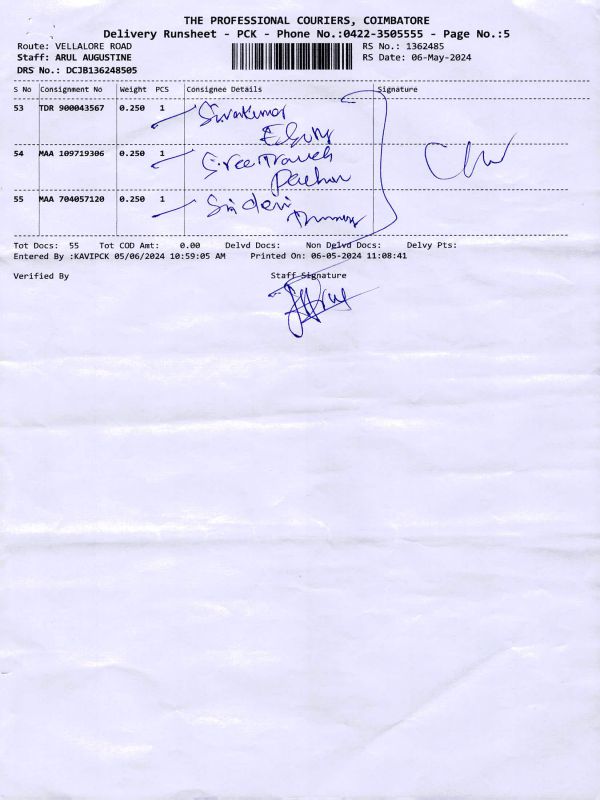 THE PROFESSIONAL COURIERS, COIMBATORE
Delivery Runsheet - PCK - Phone No.:0422-3505555 - Page No.:5
Route: VELLALORE ROAD RS No.: 1362485
Staff: ARUL AUGUSTINE RS Date: 06-May-2024
DRS No.: DCJB136248505
S No Consignment No Weight PCS Consignee Details Signature
53 TDR 900043567 0.250 1 Sivakumar
54 MAA 109719306 0.250 1 Sree Travels
55 MAA 704057120 0.250 1
Tot Docs: 55 Tot COD Amt: 0.00 Delvd Docs: Non Delvd Docs: Delvy Pts:
Entered By :KAVIPCK 05/06/2024 10:59:05 AM Printed On: 06-05-2024 11:08:41
Verified By Staff Signature